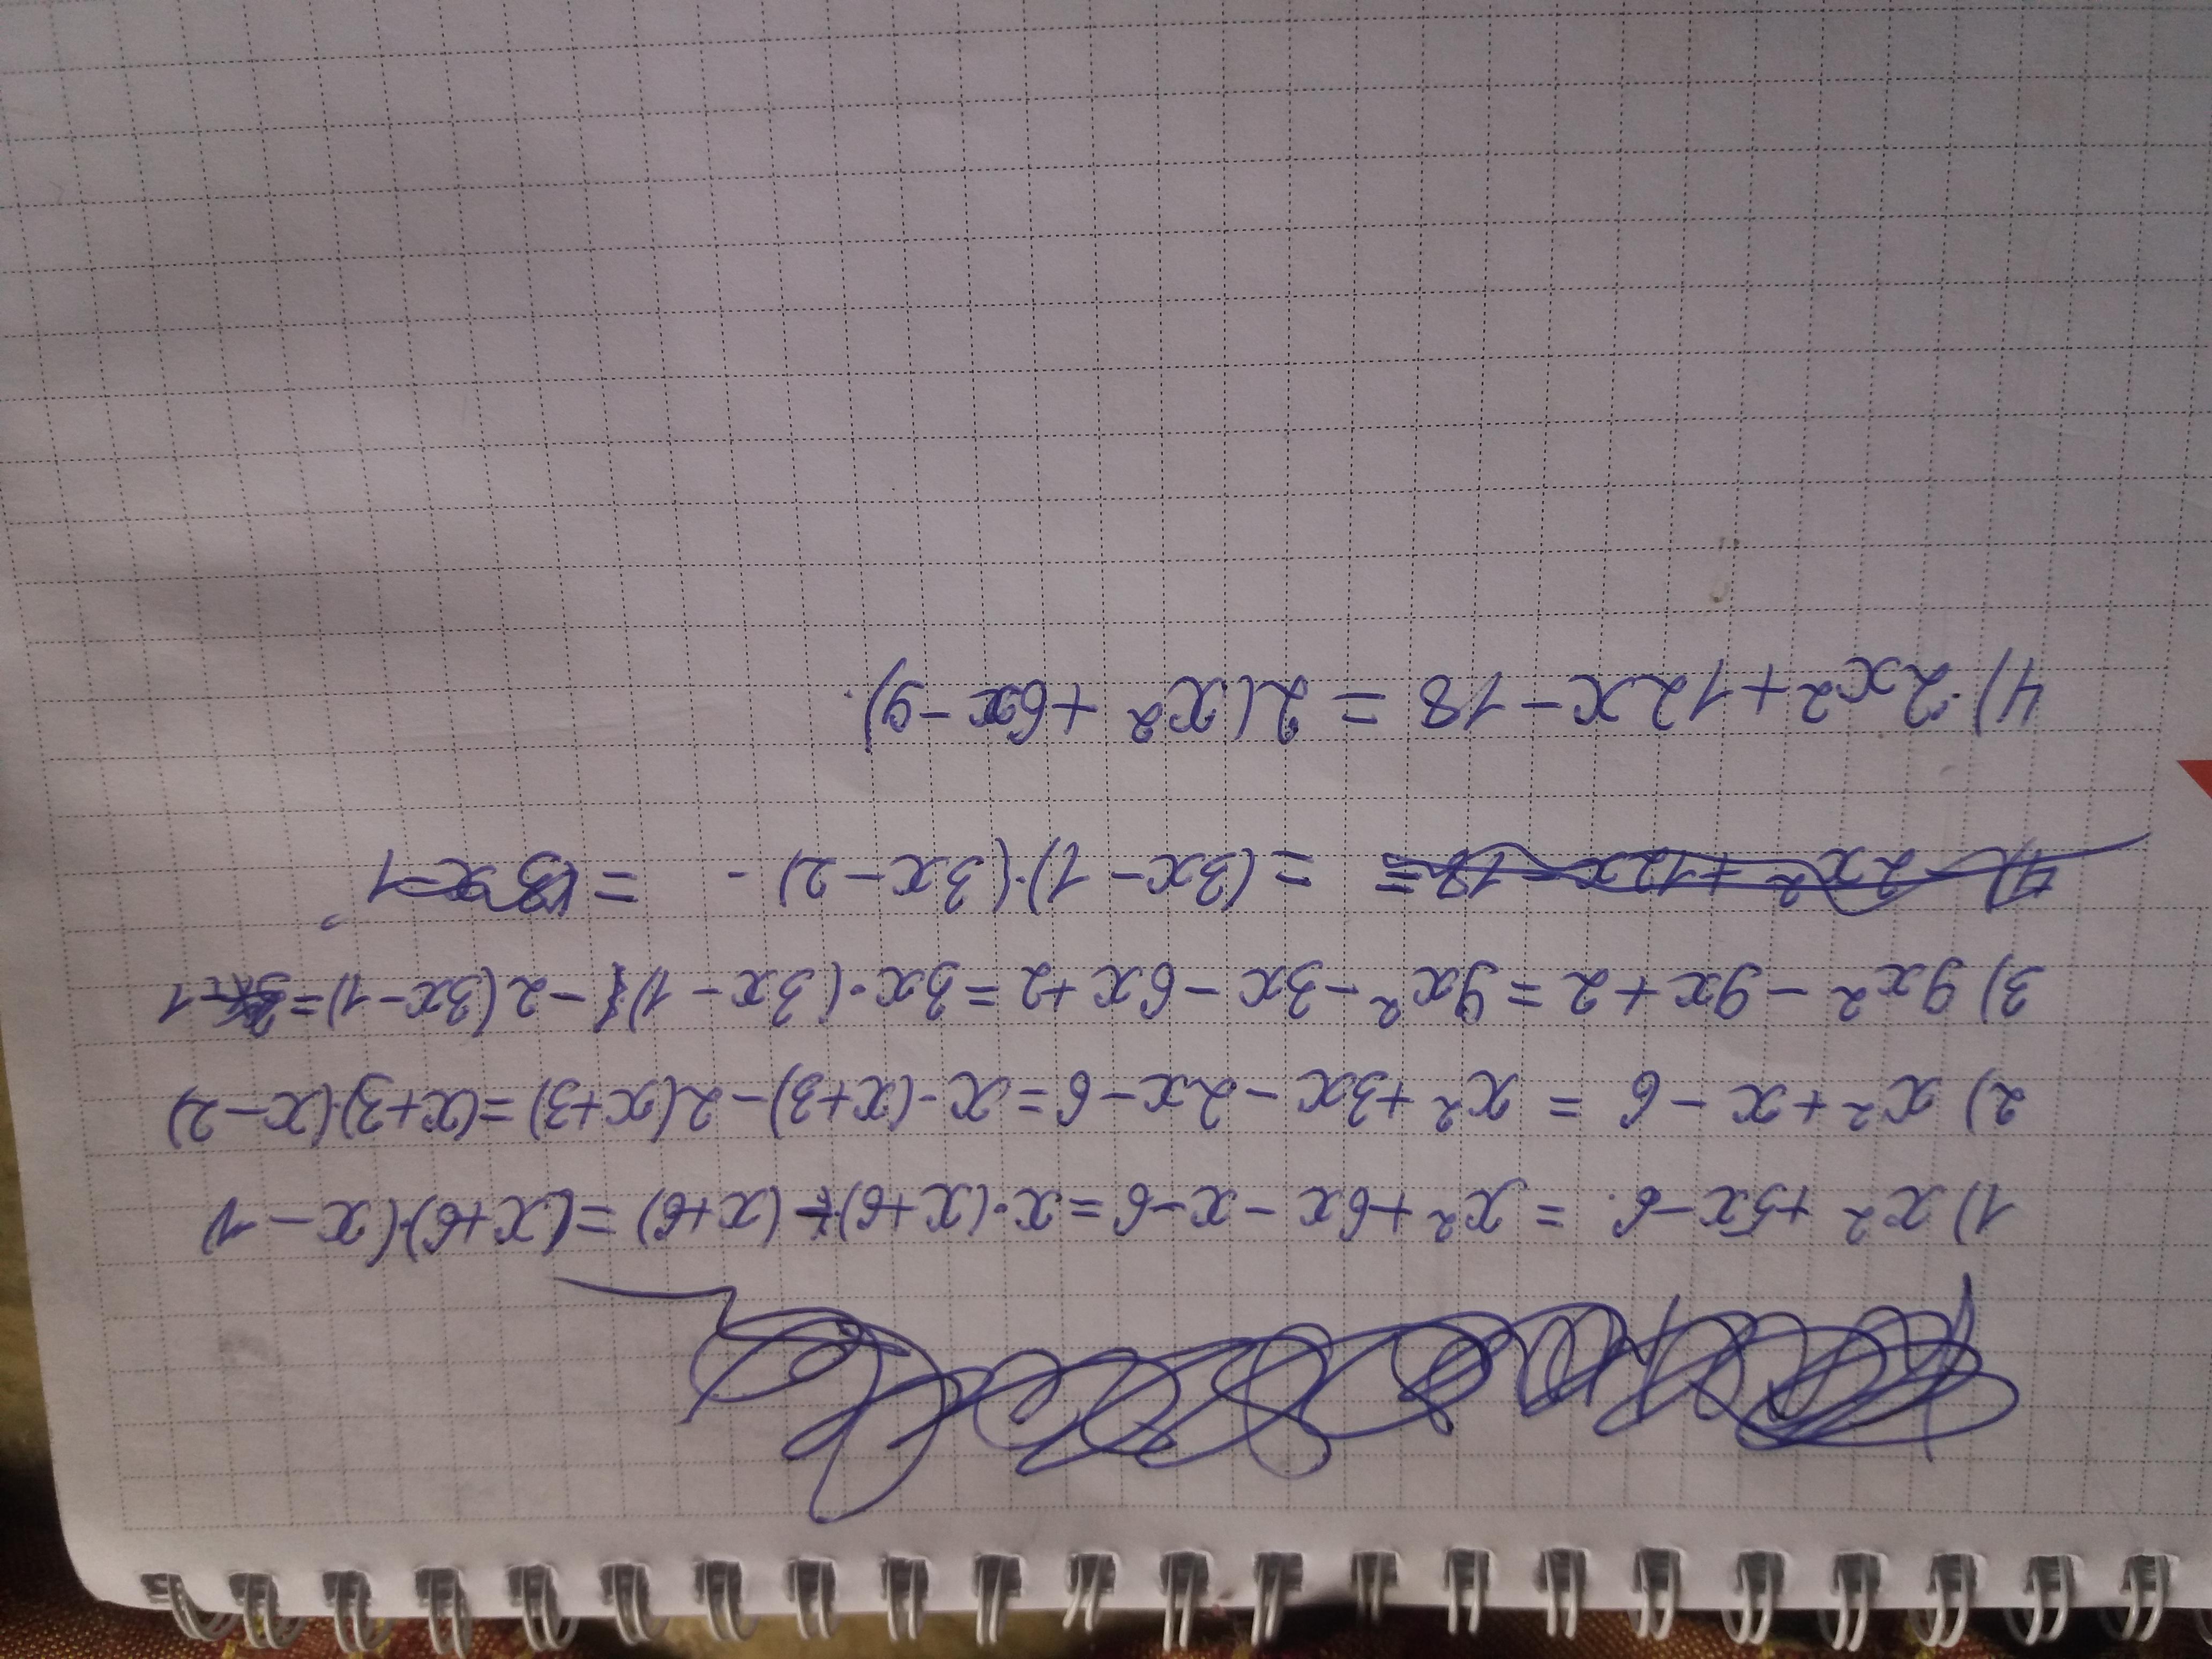 1) x² + 5x - 6 = x² + 6x - x - 6 = x·(x+6) - (x+6) = (x+6)·(x-1)
2) x² + x - 6 = x² + 3x - 2x - 6 = x·(x+3) - 2(x+3) = (x+3)·(x-2)
3) 9x² - 9x + 2 = 9x² - 3x - 6x + 2 = 3x·(3x-1) - 2(3x-1) =
4) 2x² + 12x - 18 = = (3x-1)·(3x-2)
4) 2x² + 12x - 18 = 2(x² + 6x - 9).